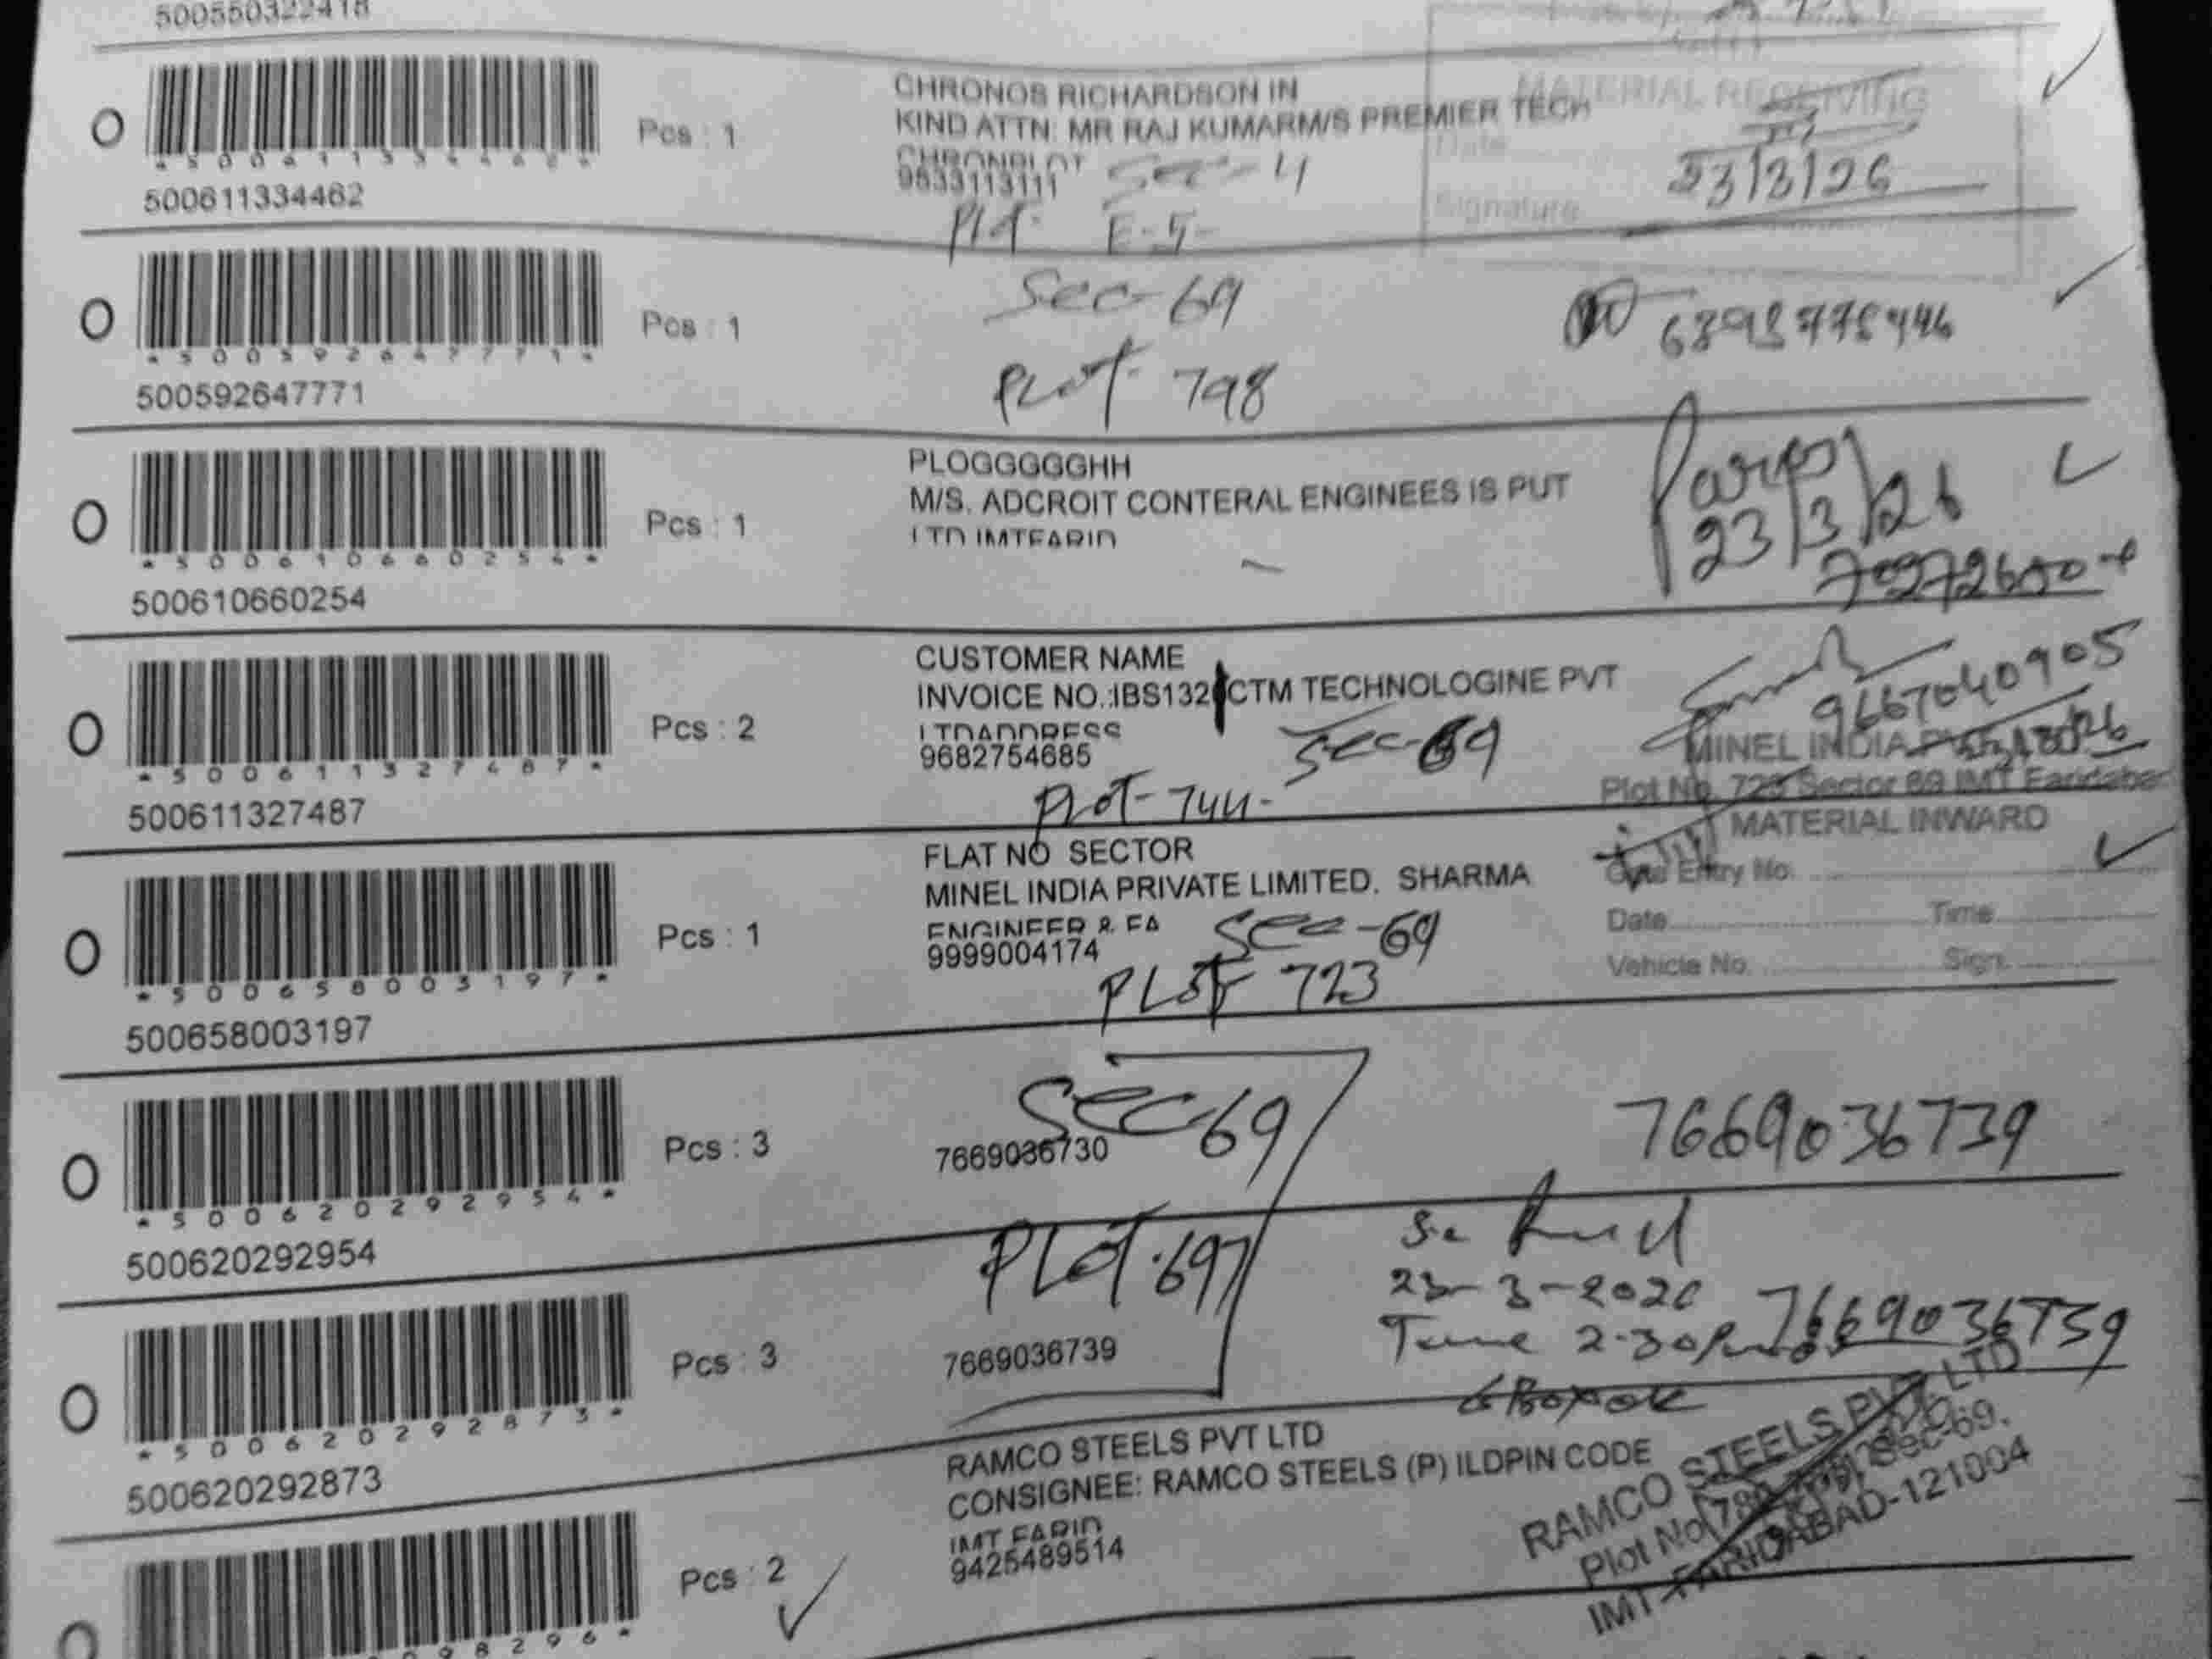 500550322418
MATERIAL RECEIVING
CHRONOS RICHARDSON IN
KIND ATTN: MR RAJ KUMARM/S PREMIER TECH
CHRONPLOT
9833113111 Sec-4
Plot E-5-
Pcs : 1
*500611334462*
500611334462
Date
23/3/26
Signature
Sec-69
Plot- 798
Pcs : 1
*500592647771*
500592647771
PLOGGGGGHH
M/S. ADCROIT CONTERAL ENGINEES IS PUT
LTD IMTFARID
Pcs : 1
*500610660254*
500610660254
23/3/26
CUSTOMER NAME
INVOICE NO.:IBS132 CTM TECHNOLOGINE PVT
LTDADDRESS
9682754685 Sec-69
Plot- 744-
Pcs : 2
*500611327487*
500611327487
9667040905
MINEL INDIA
Plot No. 723 Sector 69 IMT Faridabad
MATERIAL INWARD
Gate Entry No.
Date Time
Vehicle No. Sign.
FLAT NO SECTOR
MINEL INDIA PRIVATE LIMITED, SHARMA
ENGINEER & FA
9999004174 Sec-69
PLOT 723
Pcs : 1
*500658003197*
500658003197
Sec-69
7669036730
7669036739
Pcs : 3
*500620292954*
500620292954
PLOT-697
23-3-2026
Time 2-30 Pm
7669036739
7669036739
Pcs : 3
*500620292873*
500620292873
RAMCO STEELS PVT LTD
CONSIGNEE: RAMCO STEELS (P) ILDPIN CODE
IMT FARID
9425489514
Pcs : 2
98296*
RAMCO STEELS PVT. LTD
Plot No. Sec-69,
IMT-FARIDABAD-121004